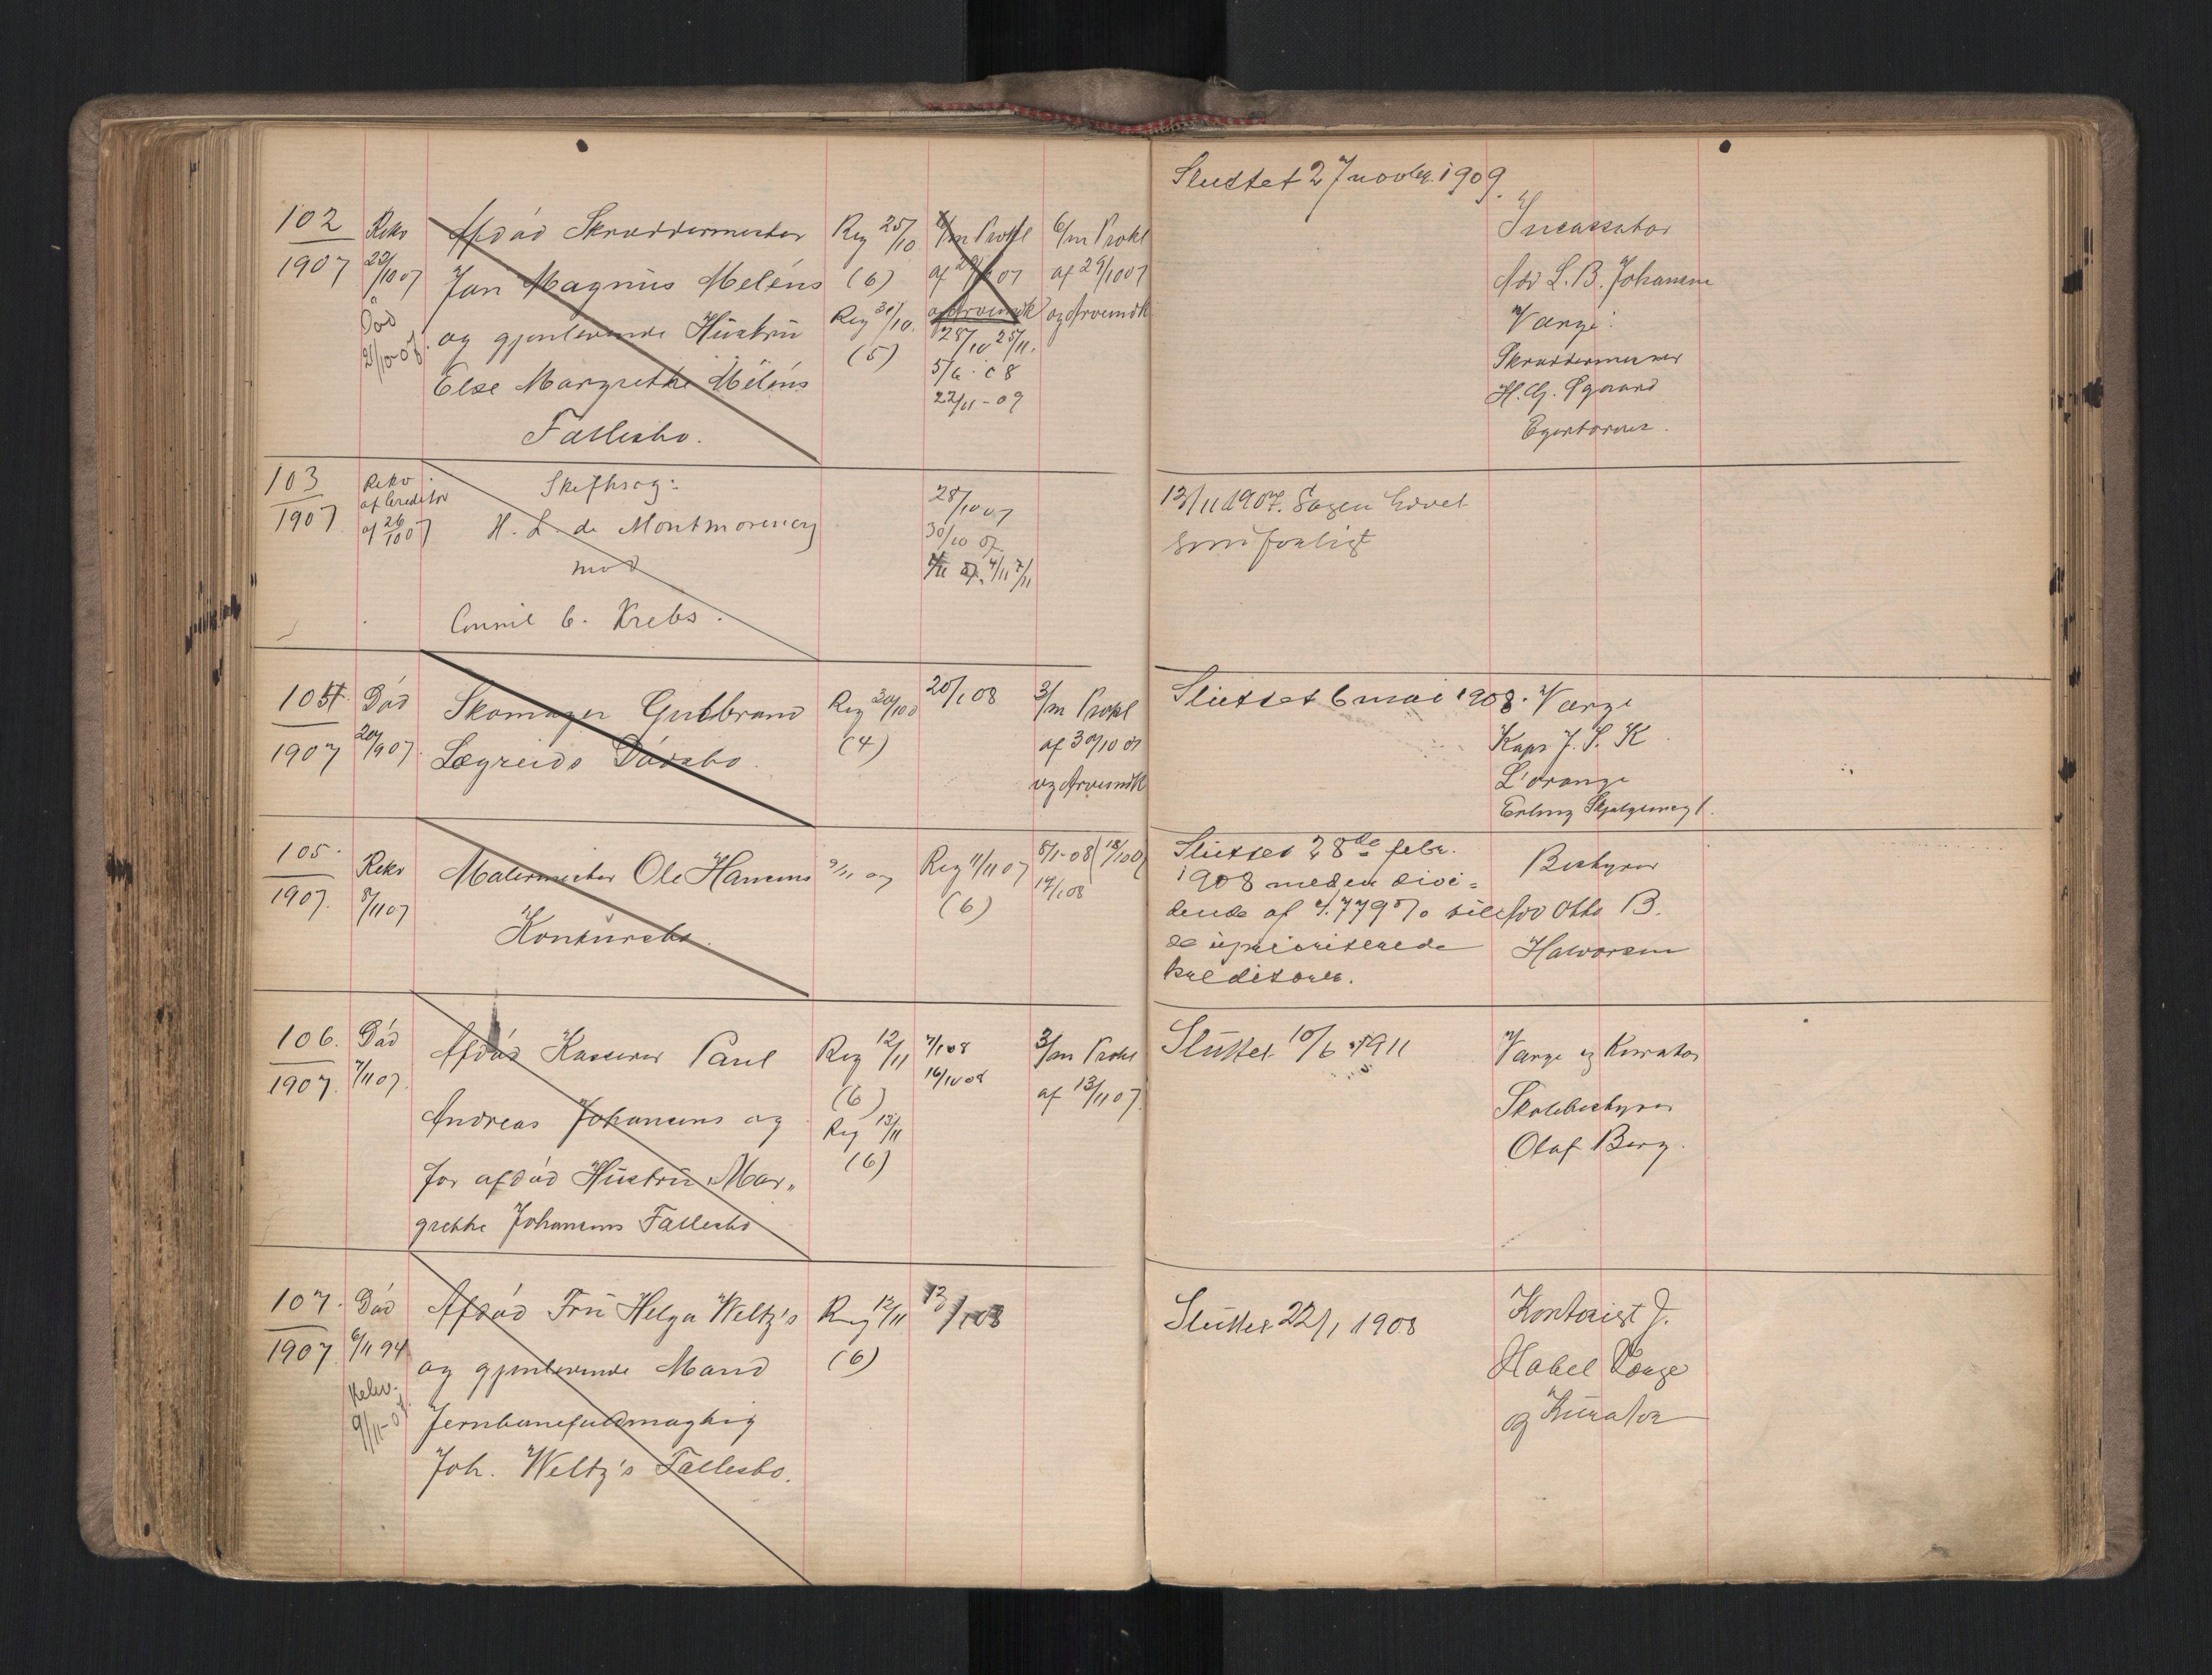 Sluttet 27 novbr. 1909.
102
1907
Rekv
22/10 07
Død
21/10-07.
Afdød Skræddermester
Jan Magnus Meléns
og gjenlevende Hustru
Else Margrethe Meléns
Fællesbo.
Reg 25/10
(6)
Reg 31/10.
(5)
6/m Prokl
af 29/10 07
og Arveindk
28/10 25/11.
5/6 - 08
22/11 - 09
6/m Prokl
af 29/10 07
og Arveindk
Incassator
Adv L. B. Johansen
Værge:
Skræddermester
H. G. Øgaard
Egertorvet.
103
1907
Rekv.
af Creditor
af 26/10 07
Skiftesag:
H. L. de Montmorency
mod
Connie C. Krebs.
28/10 07
30/10 07.
4/11 7/11
13/11 1907. Sagen hævet
som forligt
104.
1907
Død
20/9 07.
Skomager Gulbrand
Lægreids Dødsbo.
Reg 30/10 0
(4)
20/1 08
3/m Prokl
af 30/10 07
og Arveindk
Sluttet 6 mai 1908.
Værge
Kaps J. S. K.
L'orange
Erling Skjalgsonsg 1.
105.
1907.
Rekv
8/11 07
Malermester Ole Hansens
Konkursbo.
Reg 11/11 07
(6)
8/1-08 (18/1 08)
17/1 08
Sluttet 28de febr.
1908 med en divi=
dende af 4.779% til
de uprioriterede
kreditorer.
Bestyrer
Adv Otto B.
Halvorsen
106.
1907.
Død
7/11 07.
Afdød Kasserer Paul
Andreas Johansens og
før afdød Hustru Mar„
grethe Johansens Fællesbo
Reg 12/11
(6)
Reg 13/11
(6)
7/1 08
16/10 08
3/m Prokl
af 13/11 07.
Sluttet 10/6 1911
Værge og Kurator
Skolebestyrer
Olaf Berg.
107.
1907.
Død
6/11 94
Rekv.
9/11-07.
Afdød Fru Helga Weltz's
og gjenlevende Mand
Jernbanefuldmægtig
Joh. Weltz's Fællesbo.
Reg 12/11
(6)
13/1 08
Sluttet 22/1 1908
Kontorist J.
Habel Værge
og Kurator